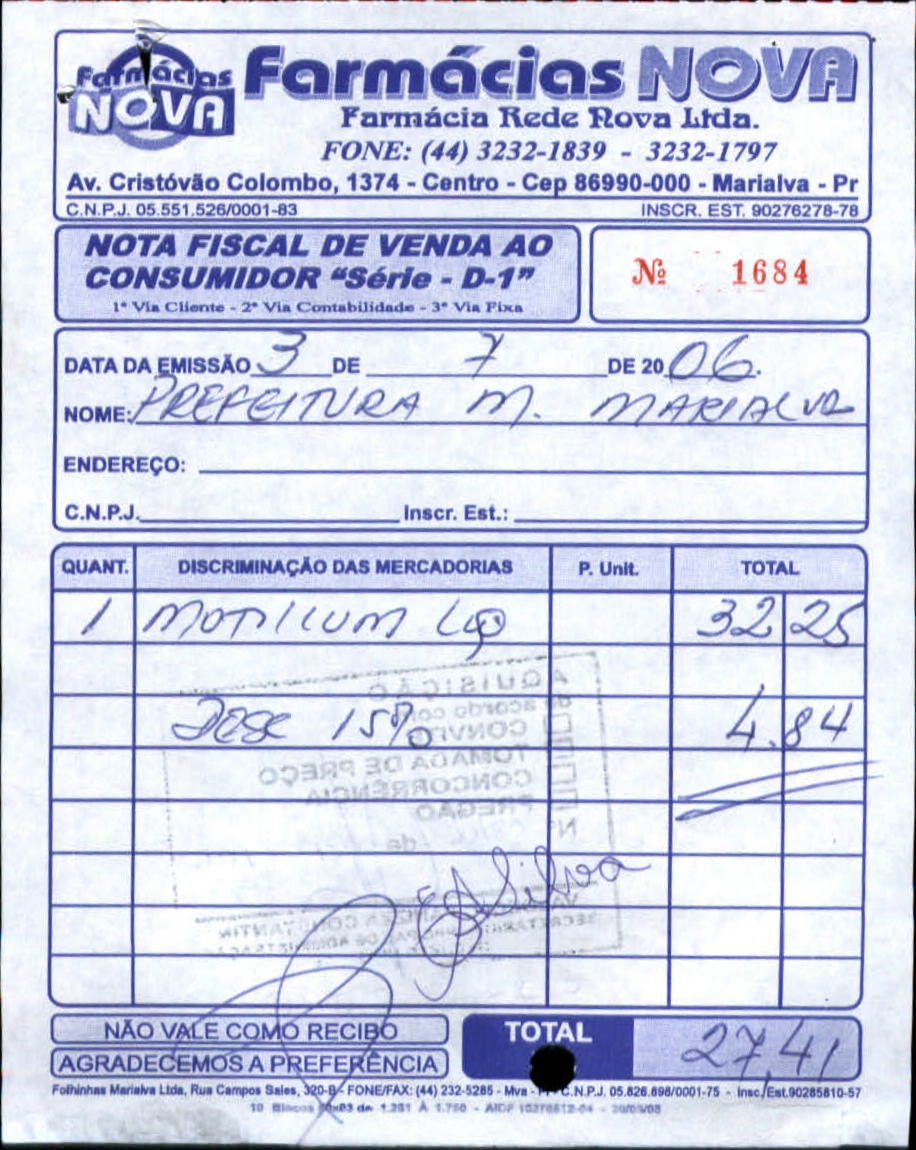 Farmácias NOVA
Farmácias NOVA
Farmácia Rede Nova Ltda.
FONE: (44) 3232-1839 - 3232-1797
Av. Cristóvão Colombo, 1374 - Centro - Cep 86990-000 - Marialva - Pr
C.N.P.J. 05.551.526/0001-83 INSCR. EST. 90276278-78
NOTA FISCAL DE VENDA AO
CONSUMIDOR "Série - D-1"
1ª Via Cliente - 2ª Via Contabilidade - 3ª Via Fixa
Nº 1684
DATA DA EMISSÃO 3 DE 7 DE 2006.
NOME: PREFEITURA M. MARIALVA
ENDEREÇO:
C.N.P.J. Inscr. Est.:
QUANT. DISCRIMINAÇÃO DAS MERCADORIAS P. Unit. TOTAL
1 MOTILIUM 32 25
AQUISIÇÃO
de acordo com
15% 4.84
CONVITE
TOMADA DE PREÇO
CONCORRÊNCIA
PREGÃO
Nº de
Silva
NÃO VALE COMO RECIBO
AGRADECEMOS A PREFERÊNCIA
TOTAL 27,41
Folhinhas Marialva Ltda, Rua Campos Sales, 320-B - FONE/FAX: (44) 232-5285 - Mva - C.N.P.J. 05.826.898/0001-75 - Insc./Est.90285810-57